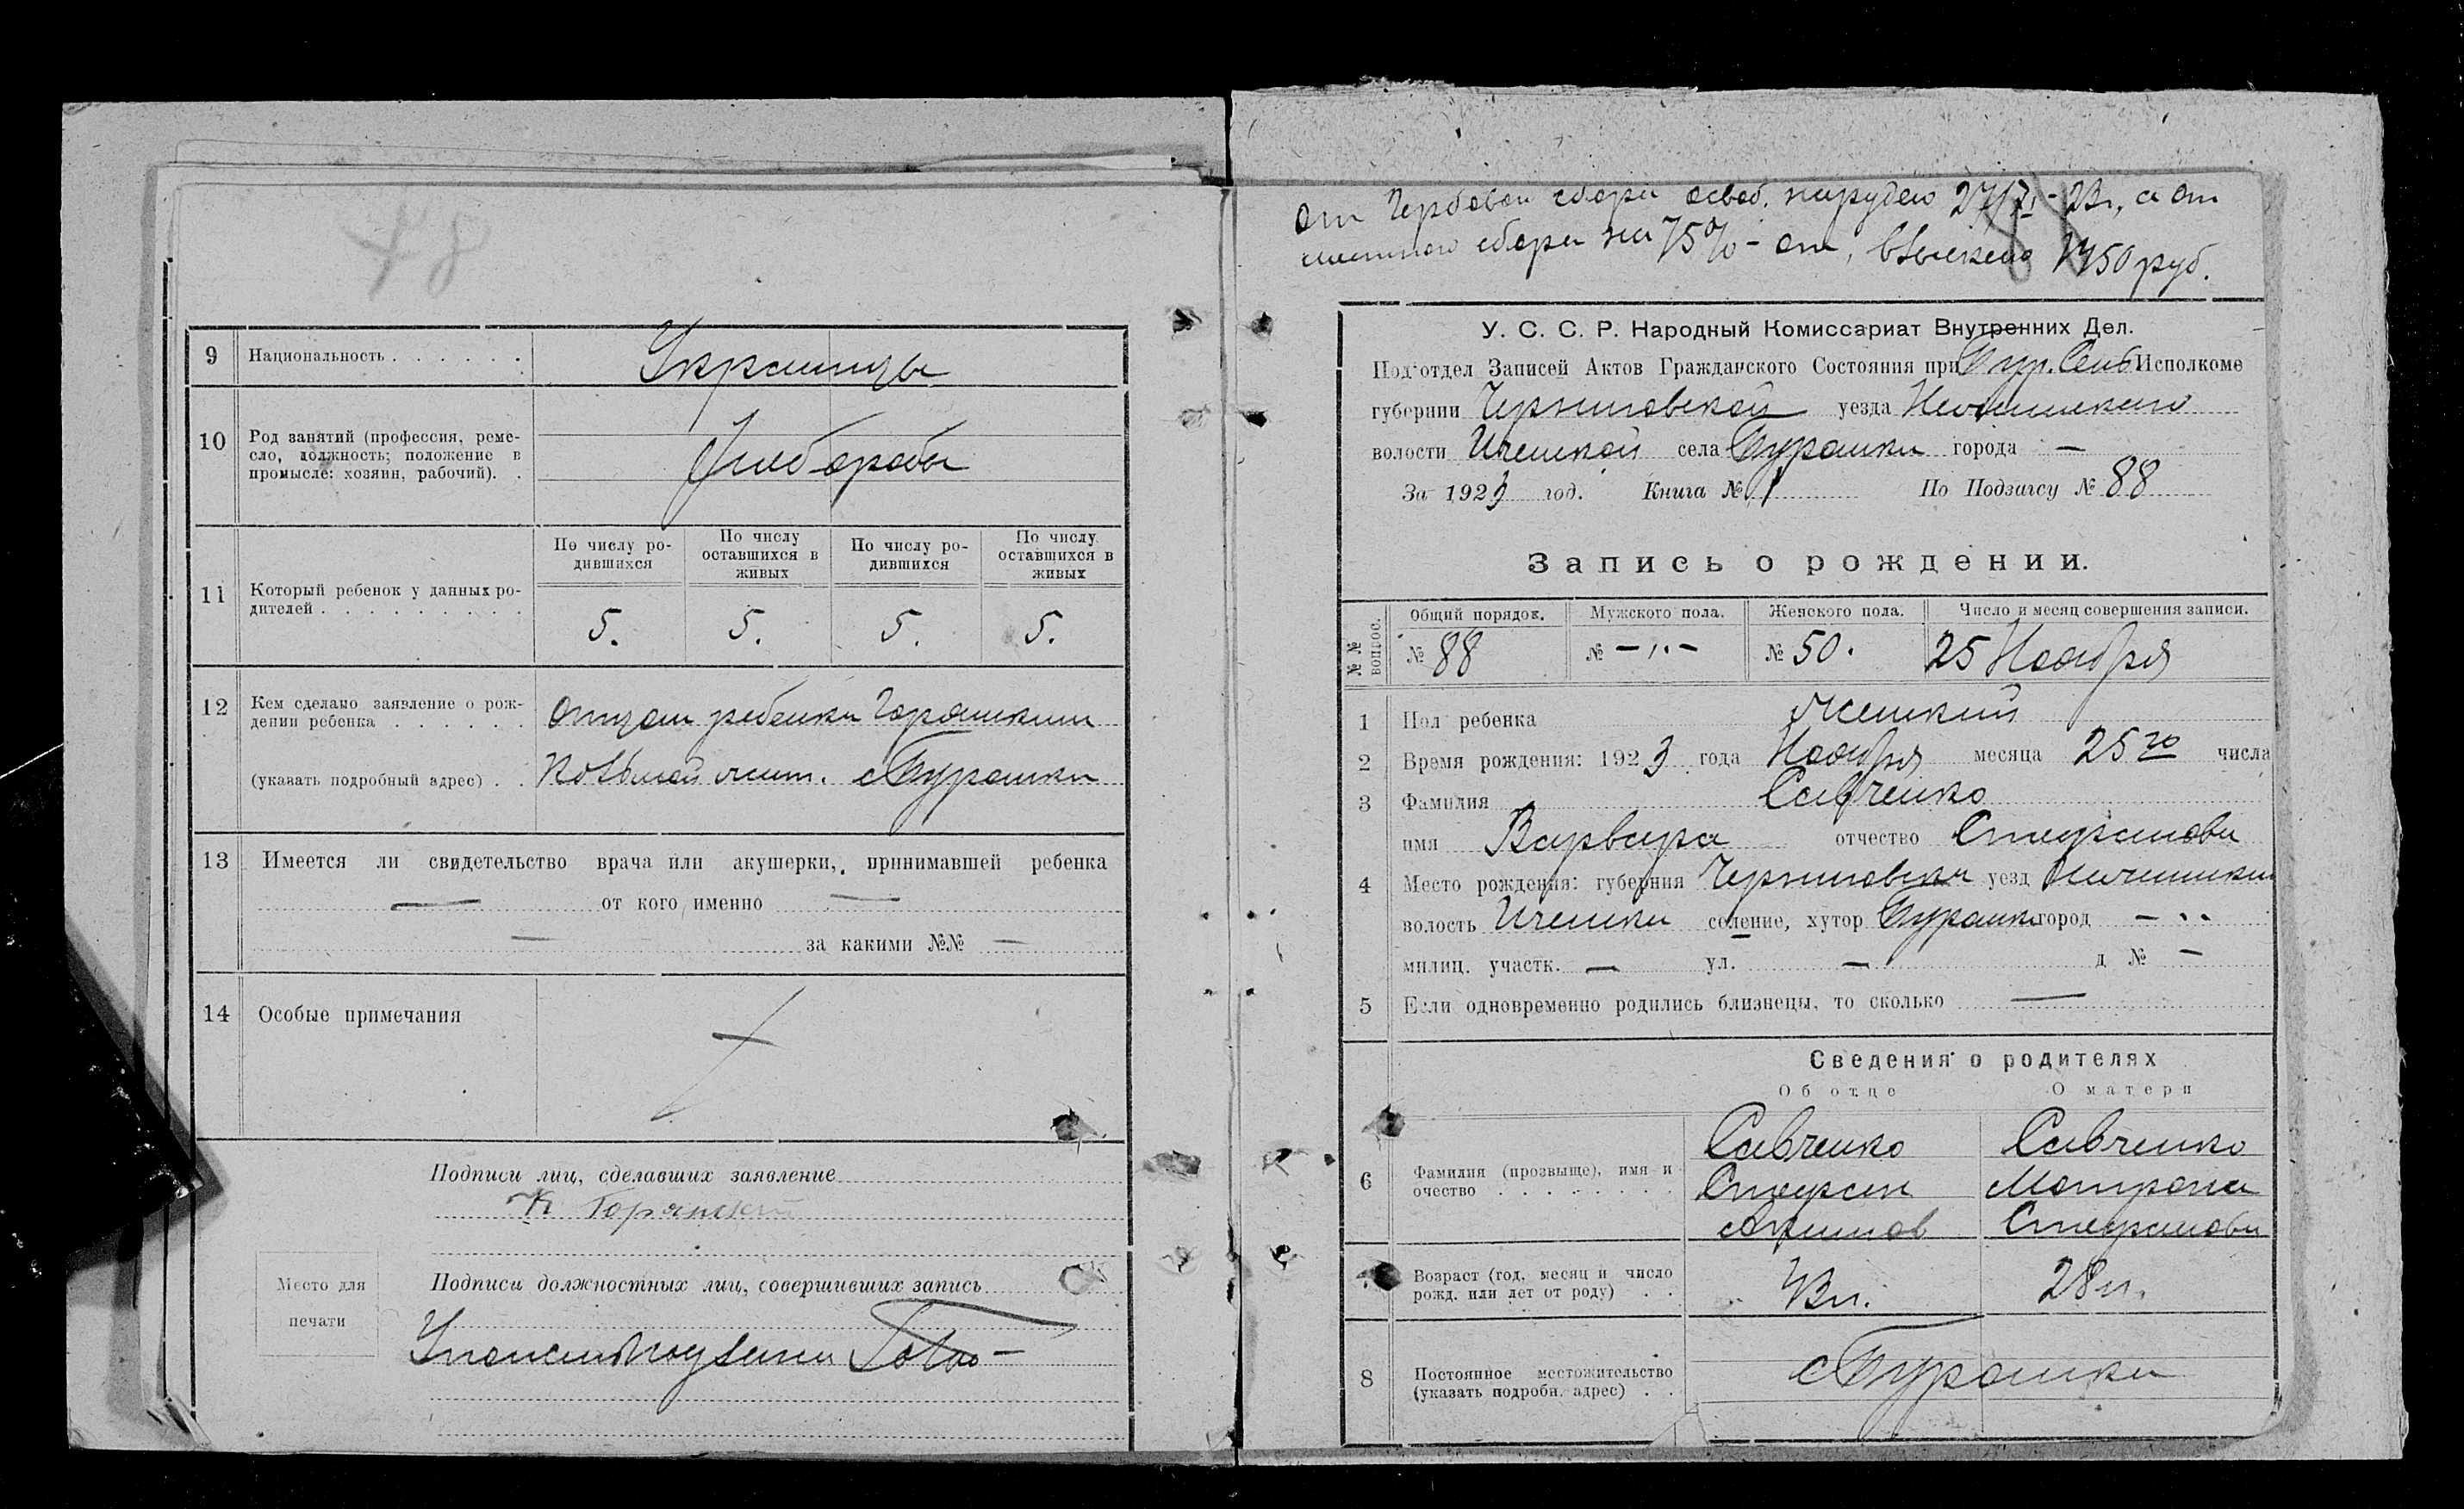 78
9 Национальность . . . . . . Украинцы
10 Род занятий (профессия, реме-
сло, должность; положение в
промысле: хозяин, рабочий). . Хлеборобы
11 Который ребенок у данных ро-
дителей . . . . . . . . .
По числу ро-
дившихся
По числу
оставшихся в
живых
По числу ро-
дившихся
По числу
оставшихся в
живых
5. 5. 5. 5.
12 Кем сделано заявление о рож-
дении ребенка . . . . . . Отцом ребенка Горянским
(указать подробный адрес) . . Козьмой жит. с Буромки
13 Имеется ли свидетельство врача или акушерки, принимавшей ребенка
— от кого именно —
— за какими №№ —
14 Особые примечания
Подписи лиц, сделавших заявление
К Горянский
Место для
печати
Подписи должностных лиц, совершивших запись
От Гербовои сбора освоб. 27/ -23г, а от
сбора на 75% - от, взыскано 1750 руб.
88
У. С. С. Р. Народный Комиссариат Внутренних Дел.
Под‘отдел Записей Актов Гражданского Состояния при Бур. Сель Исполкоме
губернии Черниговской уезда Нежинского
волости Иченской села Буромки города —
За 1923 год. Книга № 1 По Подзагсу № 88
Запись о рождении.
№ №
вопрос.
Общий порядок. Мужского пола. Женского пола. Число и месяц совершения записи.
№ 88 № — „ — № 50. 25 Ноября
1 Пол ребенка Женский
2 Время рождения: 1923 года Ноября месяца 25го числа
3 Фамилия Савченко
имя Варвара отчество Стефанова
4 Место рождения: губерния Черниговская уезд Нежинский
волость Иченска селение, хутор Буромка город — „
милиц. участк. — ул. — д № —
5 Если одновременно родились близнецы, то сколько —
Сведения о родителях
Об отце О матери
6 Фамилия (прозвыще), имя и
очество . . . . . . . .
Савченко Савченко
Стефан Матрона
Стефанова
Возраст (год, месяц и число
рожд. или лет от роду) . . 43л. 28л.
8 Постоянное местожительство
(указать подробн. адрес) . . с Буромки